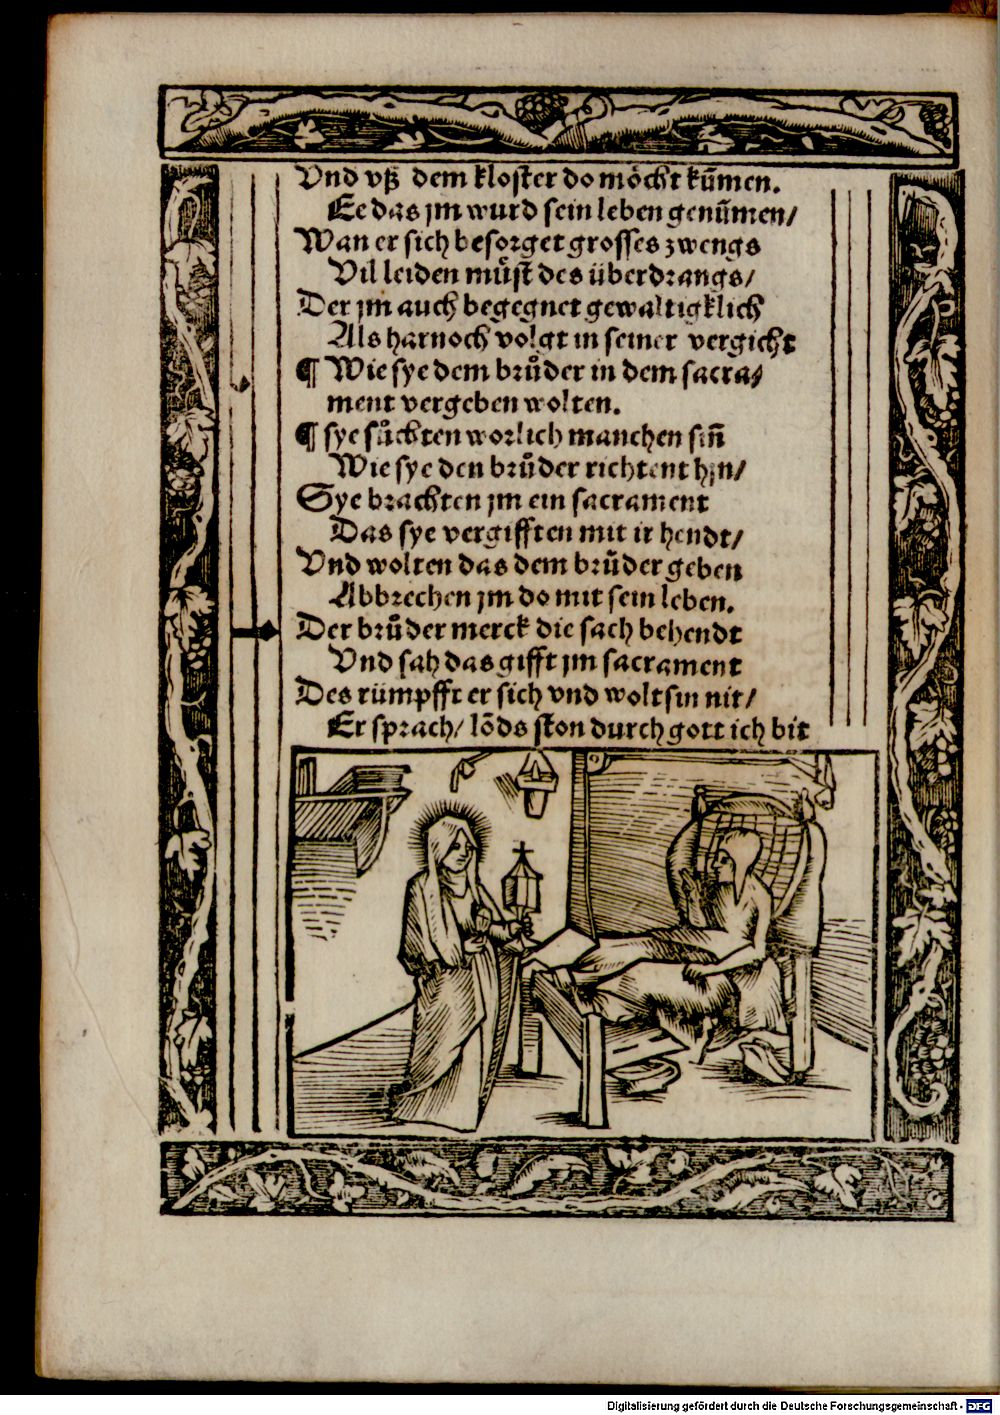 Vnd vß dem kloster do möcht kūmen.
Ee das jm wurd sein leben genūmen/
Wan er sich besorget grosses zwengs
Vil leiden můst des überdrangs/
Der jm auch begegnet gewaltigklich
Als harnoch volgt in seiner vergicht
¶ Wie sye dem brůder in dem sacra⸗
ment vergeben wolten.
¶ sye sůchten worlich manchen sin̄
Wie sye den brůder richtent hjn/
Sye brachten jm ein sacrament
Das sye vergifften mit ir hendt/
Vnd wolten das dem brůder geben
Abbrechen jm do mit sein leben.
Der brůder merck die sach behendt
Vnd sah das gifft jm sacrament
Des rümpfft er sich vnd wolt sin nit/
Er sprach/ lōds ston durch gott ich bit
Digitalisierung gefördert durch die Deutsche Forschungsgemeinschaft - DFG